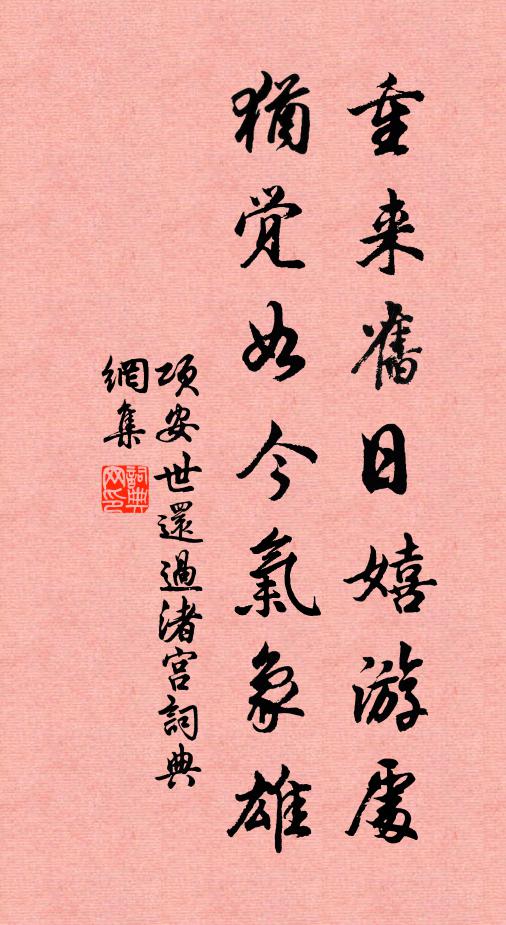 重来舊日嬉游處
猶覚如今氣象雄
項安世還過渚宫詞典
網集
詞典網印